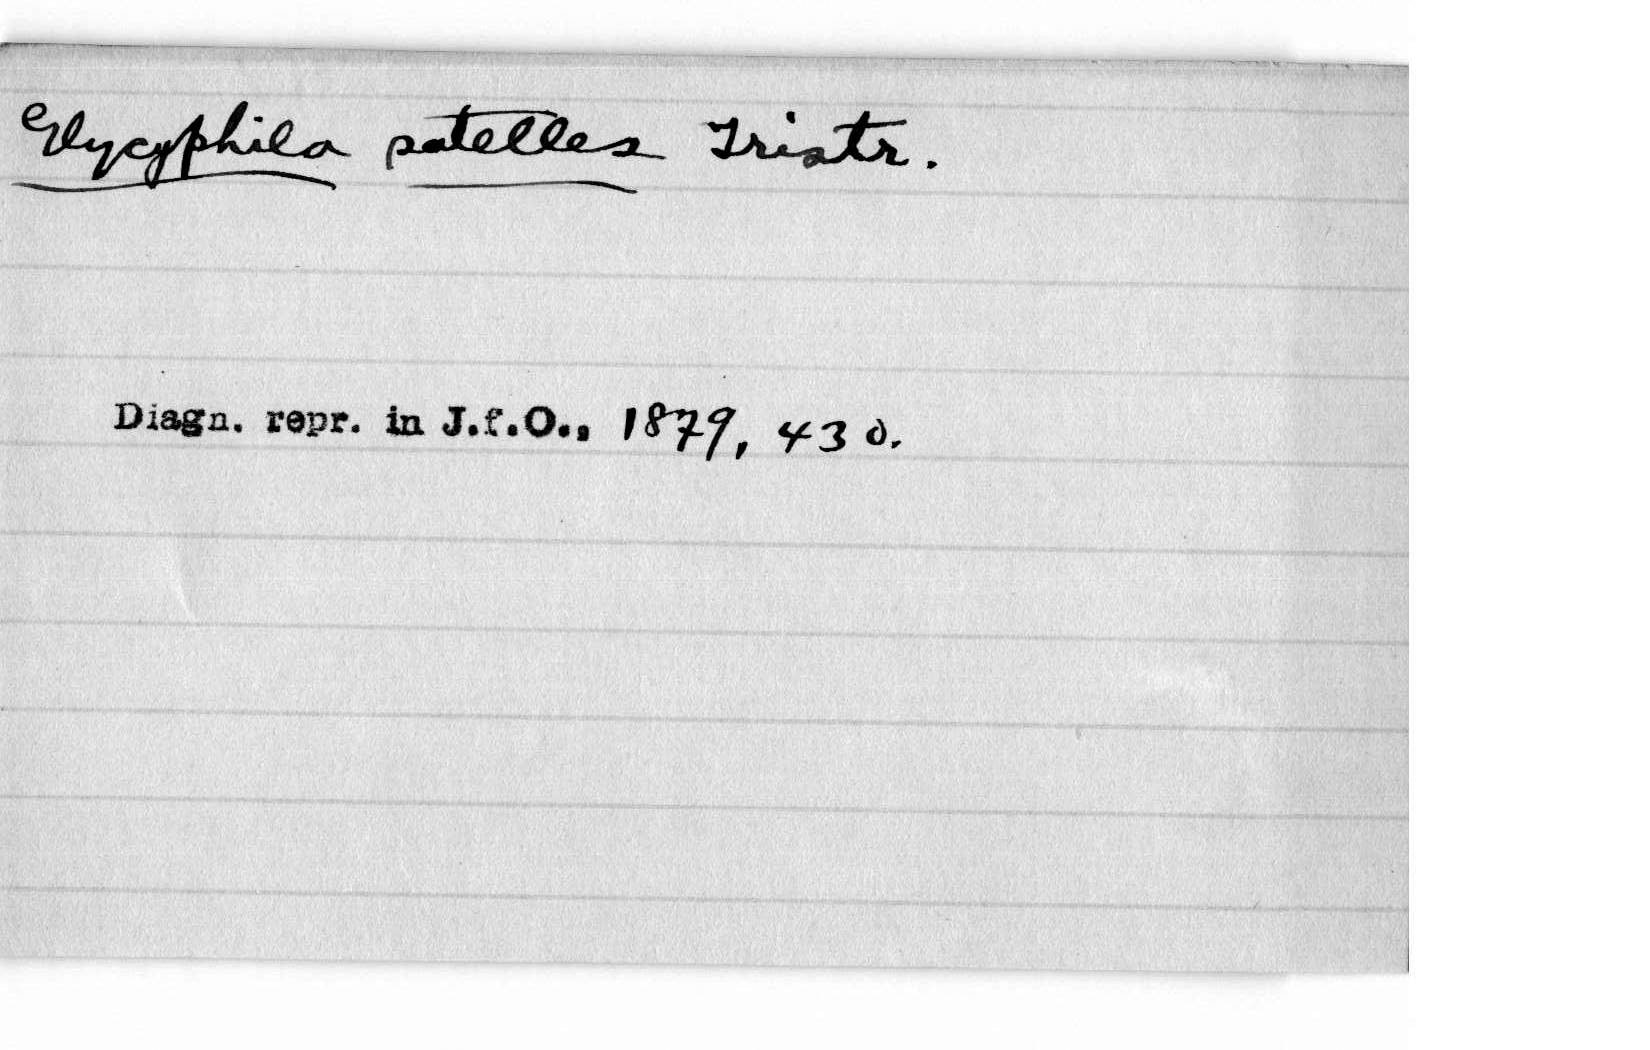 Glycyphila satelles Tristr.
Diagn. repr. in J.f.O., 1879, 430.